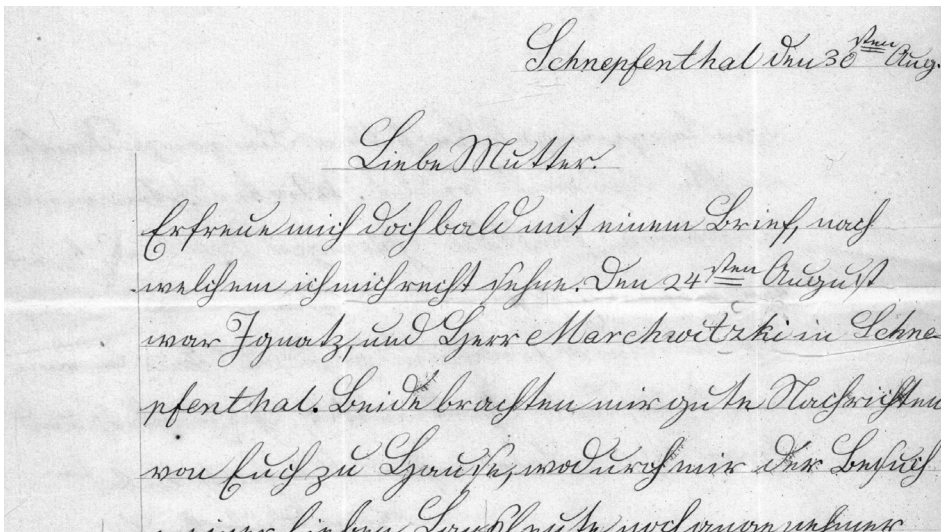 Schnepfenthal den 30sten Aug.
Liebe Mutter.
Erfreue mich doch bald mit einem Brief, nach
welchem ich mich recht sehne. Den 24sten August
war Ignatz, und Herr Marchwitzki in Schne-
pfenthal. Beide brachten mir gute Nachrichten
von Euch zu Hause, wodurch mir der Besuch
meiner lieben Landsleute noch angenehmer